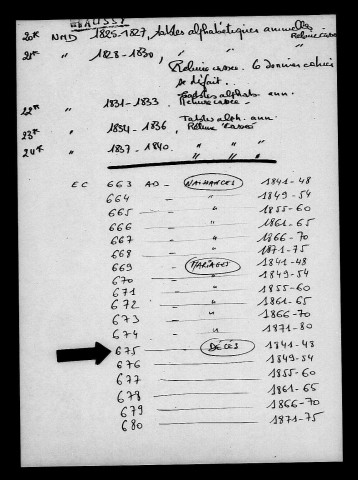 20R NMD 1825-1827, tables alphabétiques annuelles
Reliure cassée
21R " 1828-1830, " " "
Reliure cassée. 6 derniers cahiers
se défait..
22R " 1831-1833 Tables alphab. ann.
Reliure cassée.
23R " 1834-1836, Tables alph. ann.
Reliure cassée
24R " 1837-1840. " " "
EC 663 AD - NAISSANCES 1841-48
664 - " 1849-54
665 - " 1855-60
666 - " 1861-65
667 - " 1866-70
668 - " 1871-75
669 - MARIAGES 1841-48
670 - " 1849-54
671 - " 1855-60
672 - " 1861-65
673 - " 1866-70
674 - " 1871-80
675 DÉCÈS 1841-48
676 1849-54
677 1855-60
678 1861-65
679 1866-70
680 1871-75